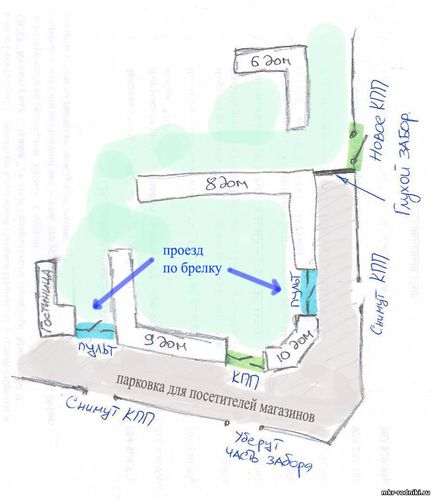 6 дом
Новое КПП
Глухой забор
8 дом
проезд
по брелку
пульт
Гостиница
Снимут КПП
пульт
9 дом
10 дом
КПП
парковка для посетителей магазинов
Снимут КПП
Уберут
часть забора
mkr-rodniki.ru